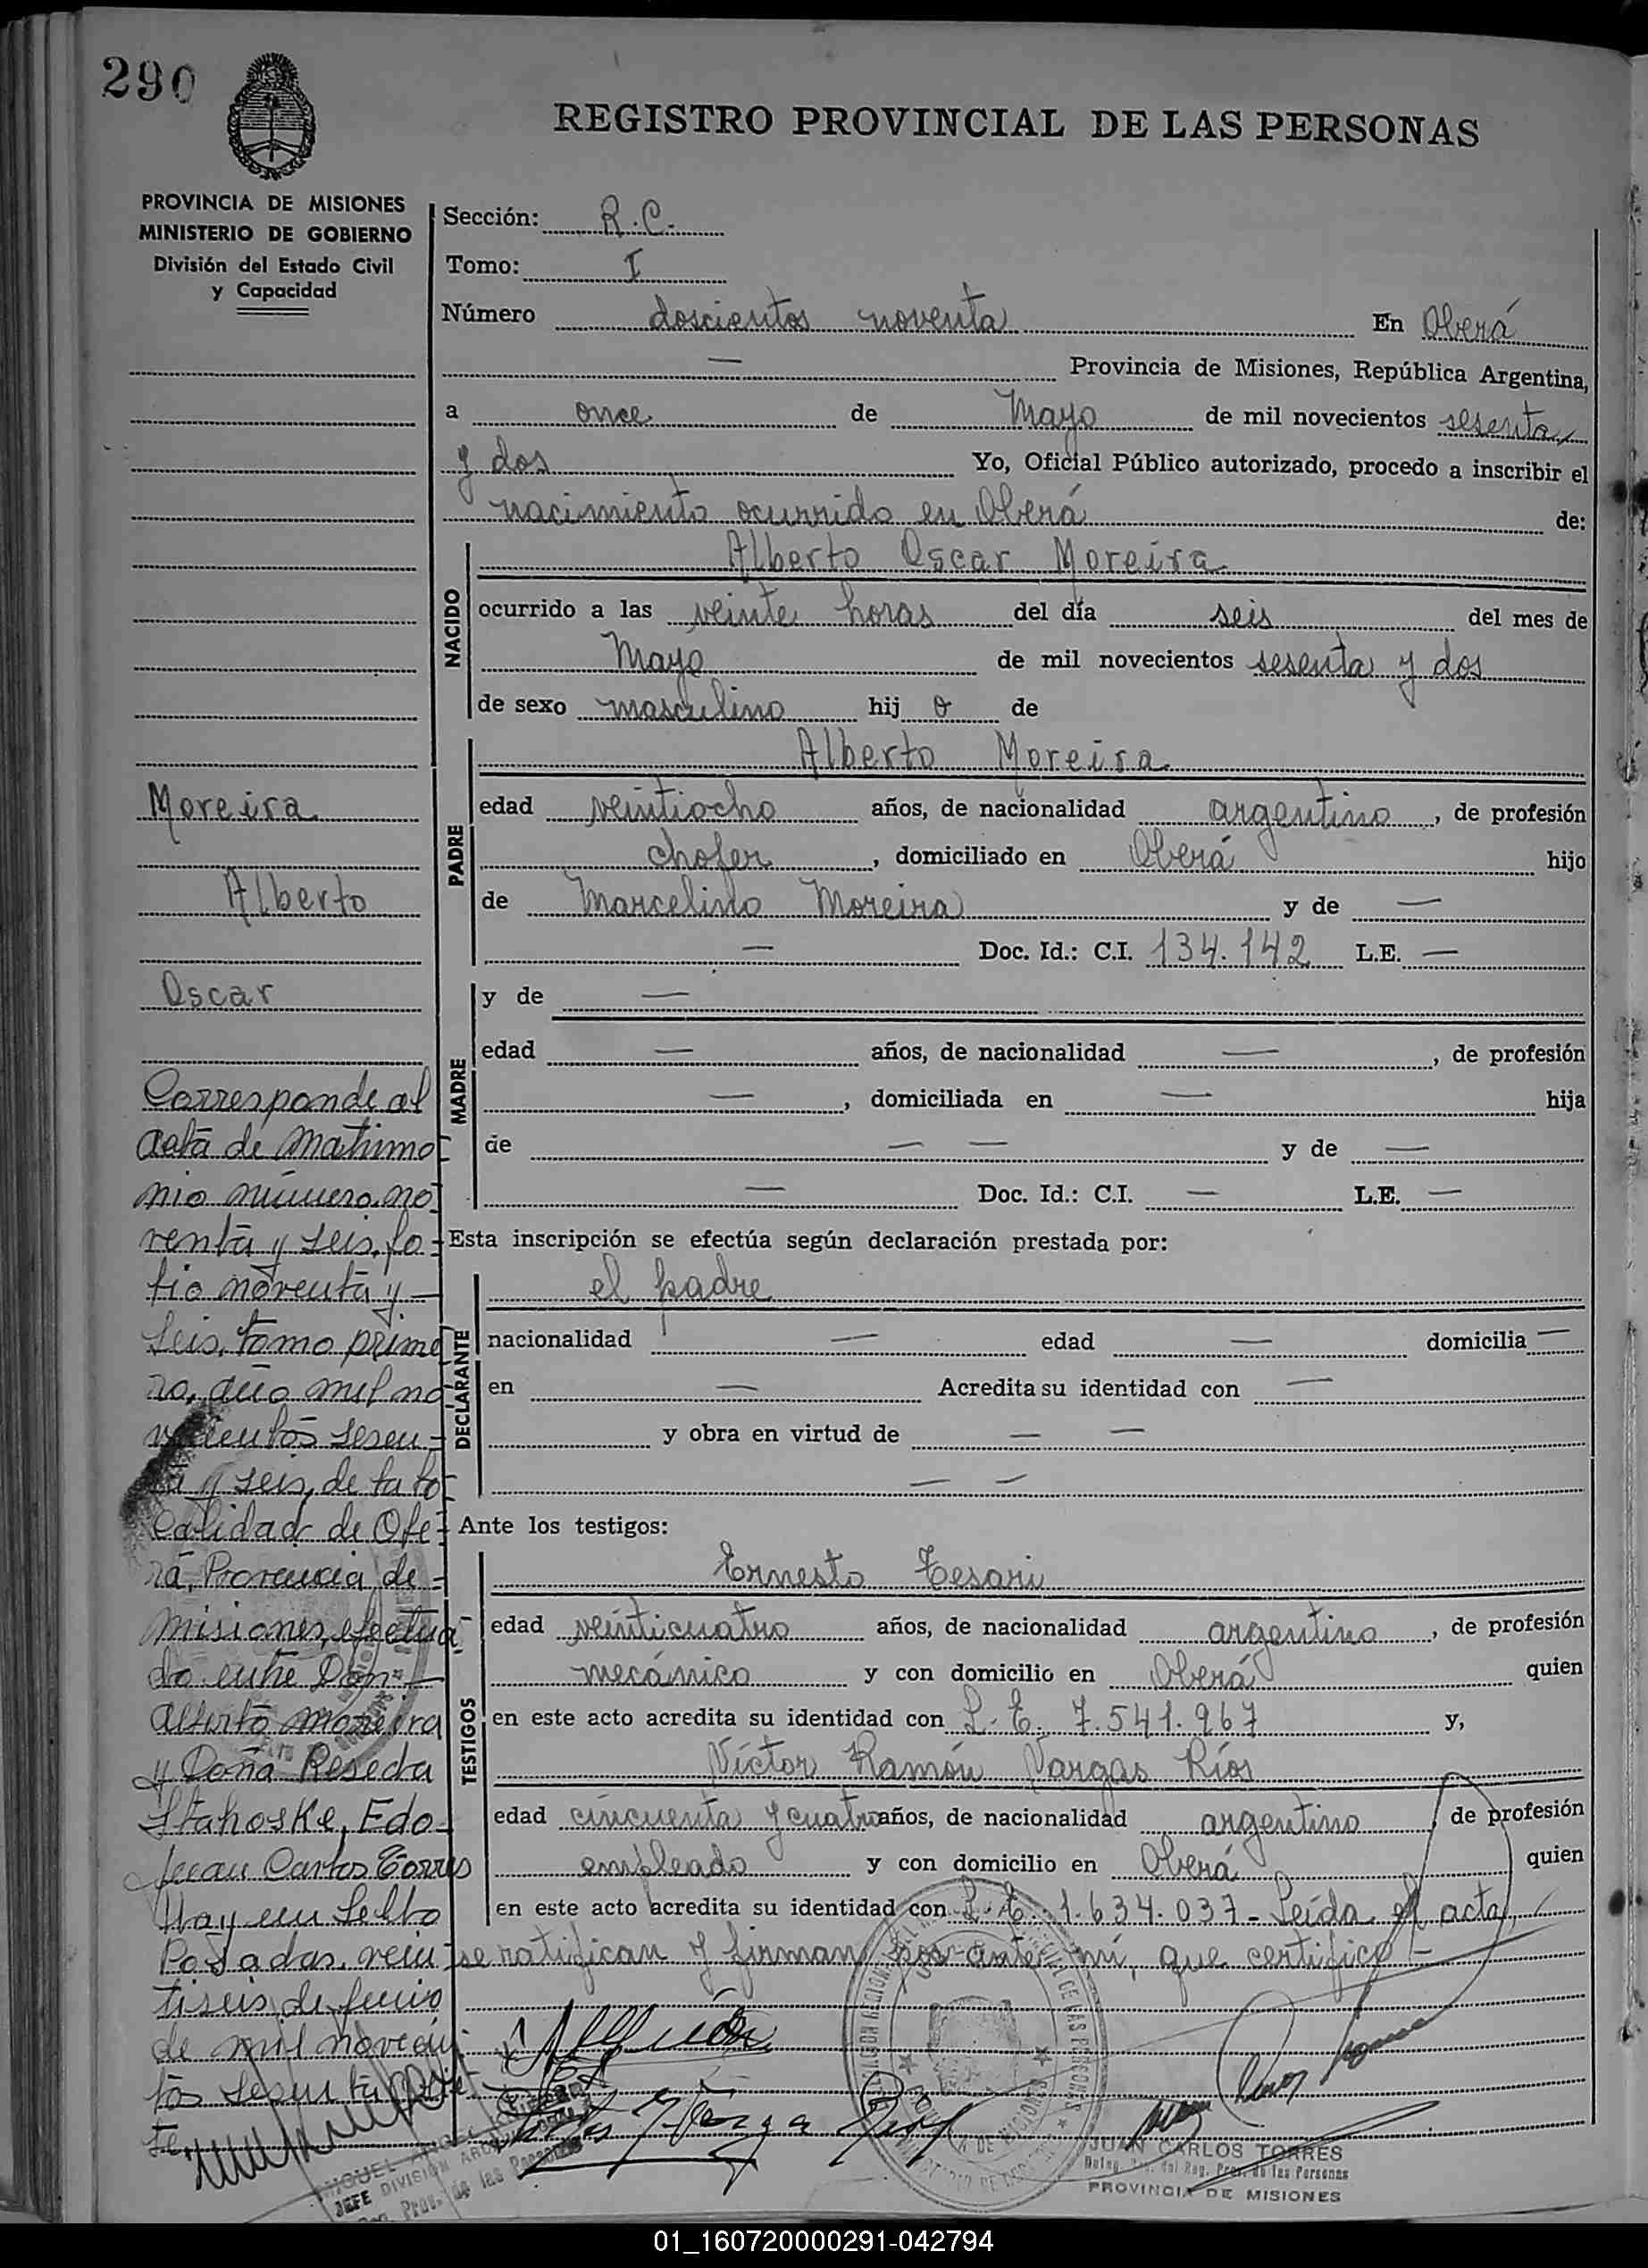 290
REGISTRO PROVINCIAL DE LAS PERSONAS
PROVINCIA DE MISIONES
MINISTERIO DE GOBIERNO
División del Estado Civil
y Capacidad
Sección: R.C.
Tomo: I
Número doscientos noventa En Oberá
— Provincia de Misiones, República Argentina,
a once de Mayo de mil novecientos sesenta
y dos Yo, Oficial Público autorizado, procedo a inscribir el
nacimiento ocurrido en Oberá de:
NACIDO
Alberto Oscar Moreira
ocurrido a las veinte horas del día seis del mes de
Mayo de mil novecientos sesenta y dos
de sexo masculino hij o de
PADRE
Alberto Moreira
edad veintiocho años, de nacionalidad argentino, de profesión
chofer, domiciliado en Oberá hijo
de Marcelino Moreira y de —
— Doc. Id.: C.I. 134.142 L.E. —
MADRE
y de —
edad — años, de nacionalidad —, de profesión
—, domiciliada en — hija
de — — y de —
— Doc. Id.: C.I. — L.E. —
Esta inscripción se efectúa según declaración prestada por:
DECLARANTE
el padre
nacionalidad — edad — domicilia —
en — Acredita su identidad con —
y obra en virtud de — —
— —
Ante los testigos:
TESTIGOS
Ernesto Cesari
edad veinticuatro años, de nacionalidad argentino, de profesión
mecánico y con domicilio en Oberá quien
en este acto acredita su identidad con L.E. 7.541.967 y,
Víctor Ramón Vargas Ríos
edad cincuenta y cuatro años, de nacionalidad argentino, de profesión
empleado y con domicilio en Oberá quien
en este acto acredita su identidad con L.E. 1.634.037- Leída el acta,
se ratifican y firman por ante mí, que certifico.-
Moreira
Alberto
Oscar
Corresponde al
acta de matrimo
nio número no
venta y seis, fo-
lio noventa y
seis, tomo prime
ro, año mil no
vecientos sesen-
ta y seis, de la lo-
calidad de Obe-
rá, Provincia de-
Misiones, efectua
do entre Don-
Alberto Moreira
y Doña Reseda
Stahoske, Edo-
Juan Carlos Torres
Hay un sello
Posadas, vein
tiseis de junio
de mil novecien
tos sesenta
JEFE DIVISION
Prov. de las Personas
JUAN CARLOS TORRES
Deleg. del Reg. Prov. de las Personas
PROVINCIA DE MISIONES
01_160720000291-042794